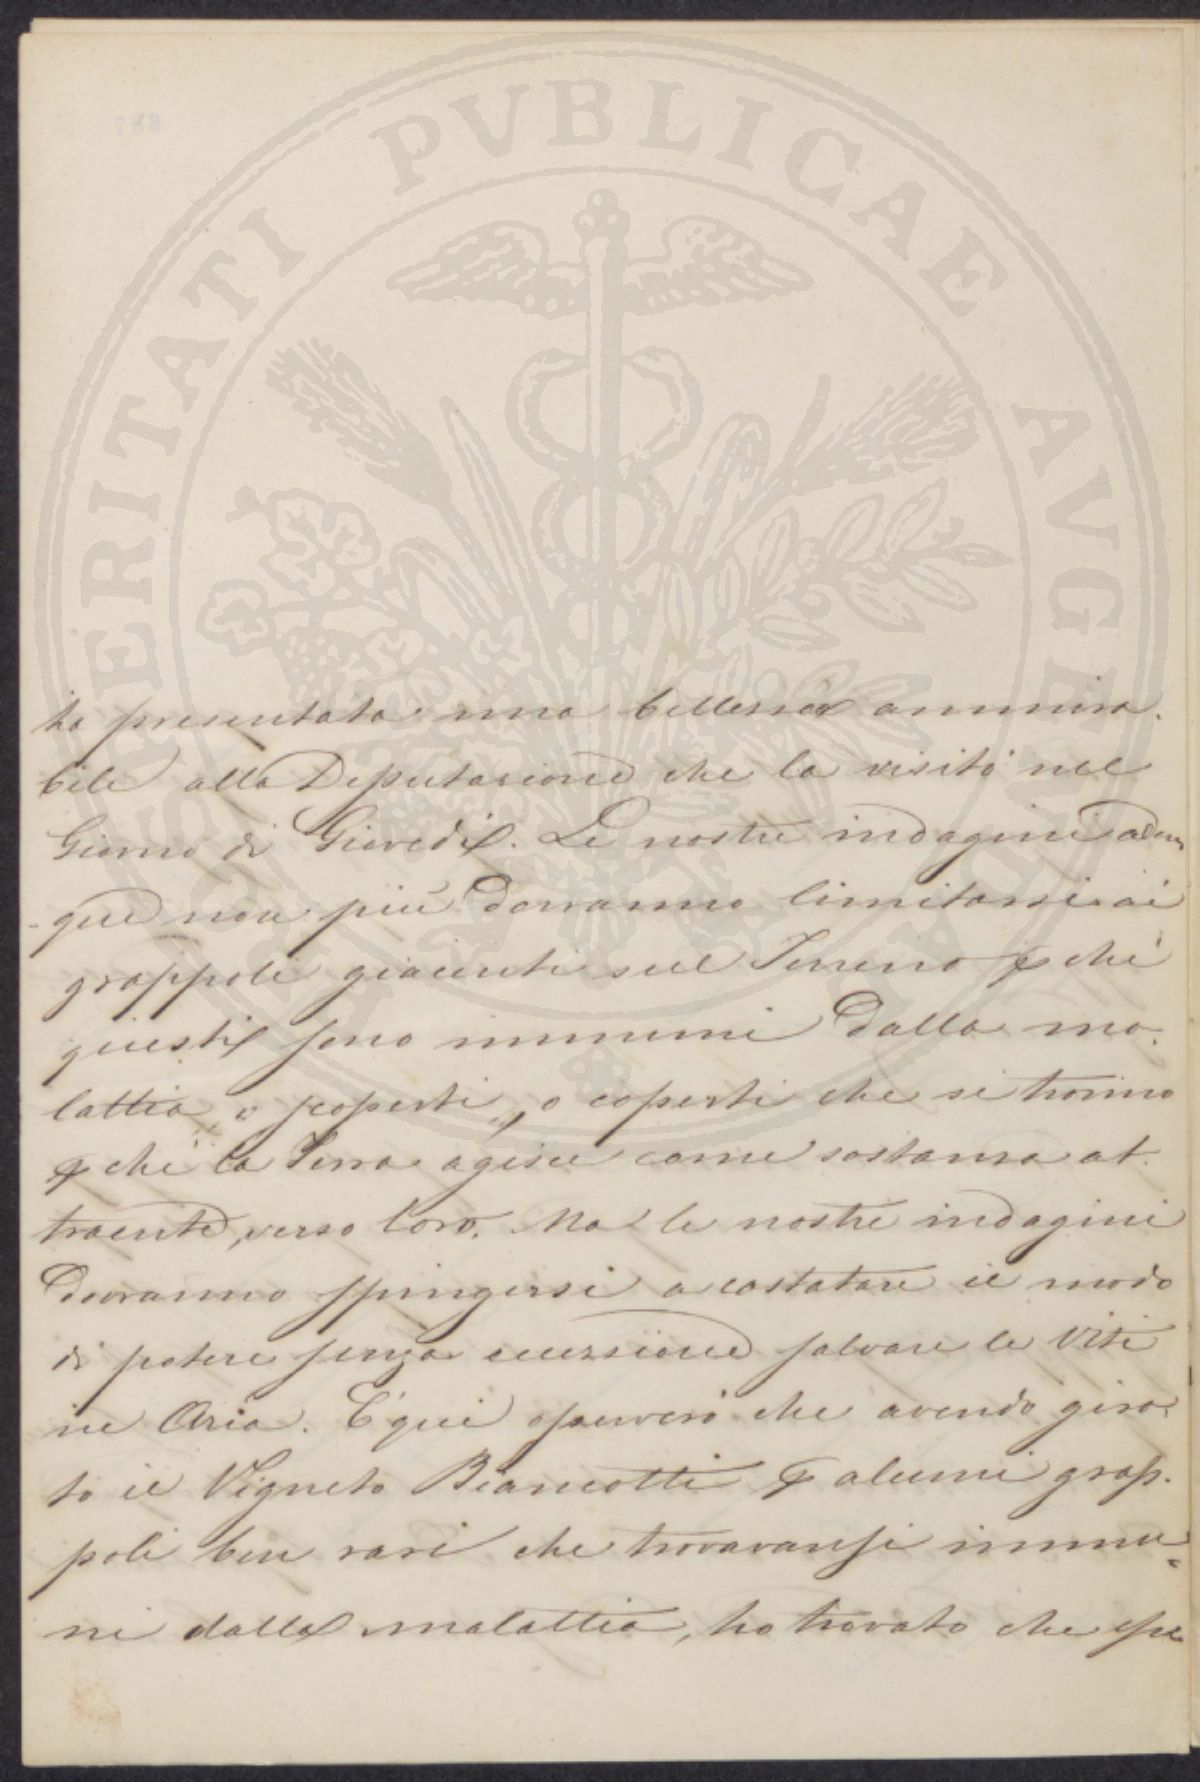 PROSPERITATI PVBLICAE AVGENDAE
ta presentata una bellezza ammira-
bile alla Deputazione che la visitò nel
Giorno di Giovedì. Le nostre indagini adun
-que non più dovranno limitarsi ai
grappoli giacenti sul Terreno pchè
questi sono immuni dalla ma-
lattia, o scoperti, o coperti che si trovino
pchè la Terra agisce come sostanza at-
traente, verso loro. Ma le nostre indagini
dovranno spingersi a costatare il modo
di potere senza eccezione salvare le Viti
ne Aria. E qui osserverò che avendo gira-
to il Vigneto Biancotti p alcuni grap-
poli ben rari che trovavansi immu=
ni dalla malattia, ho trovato che